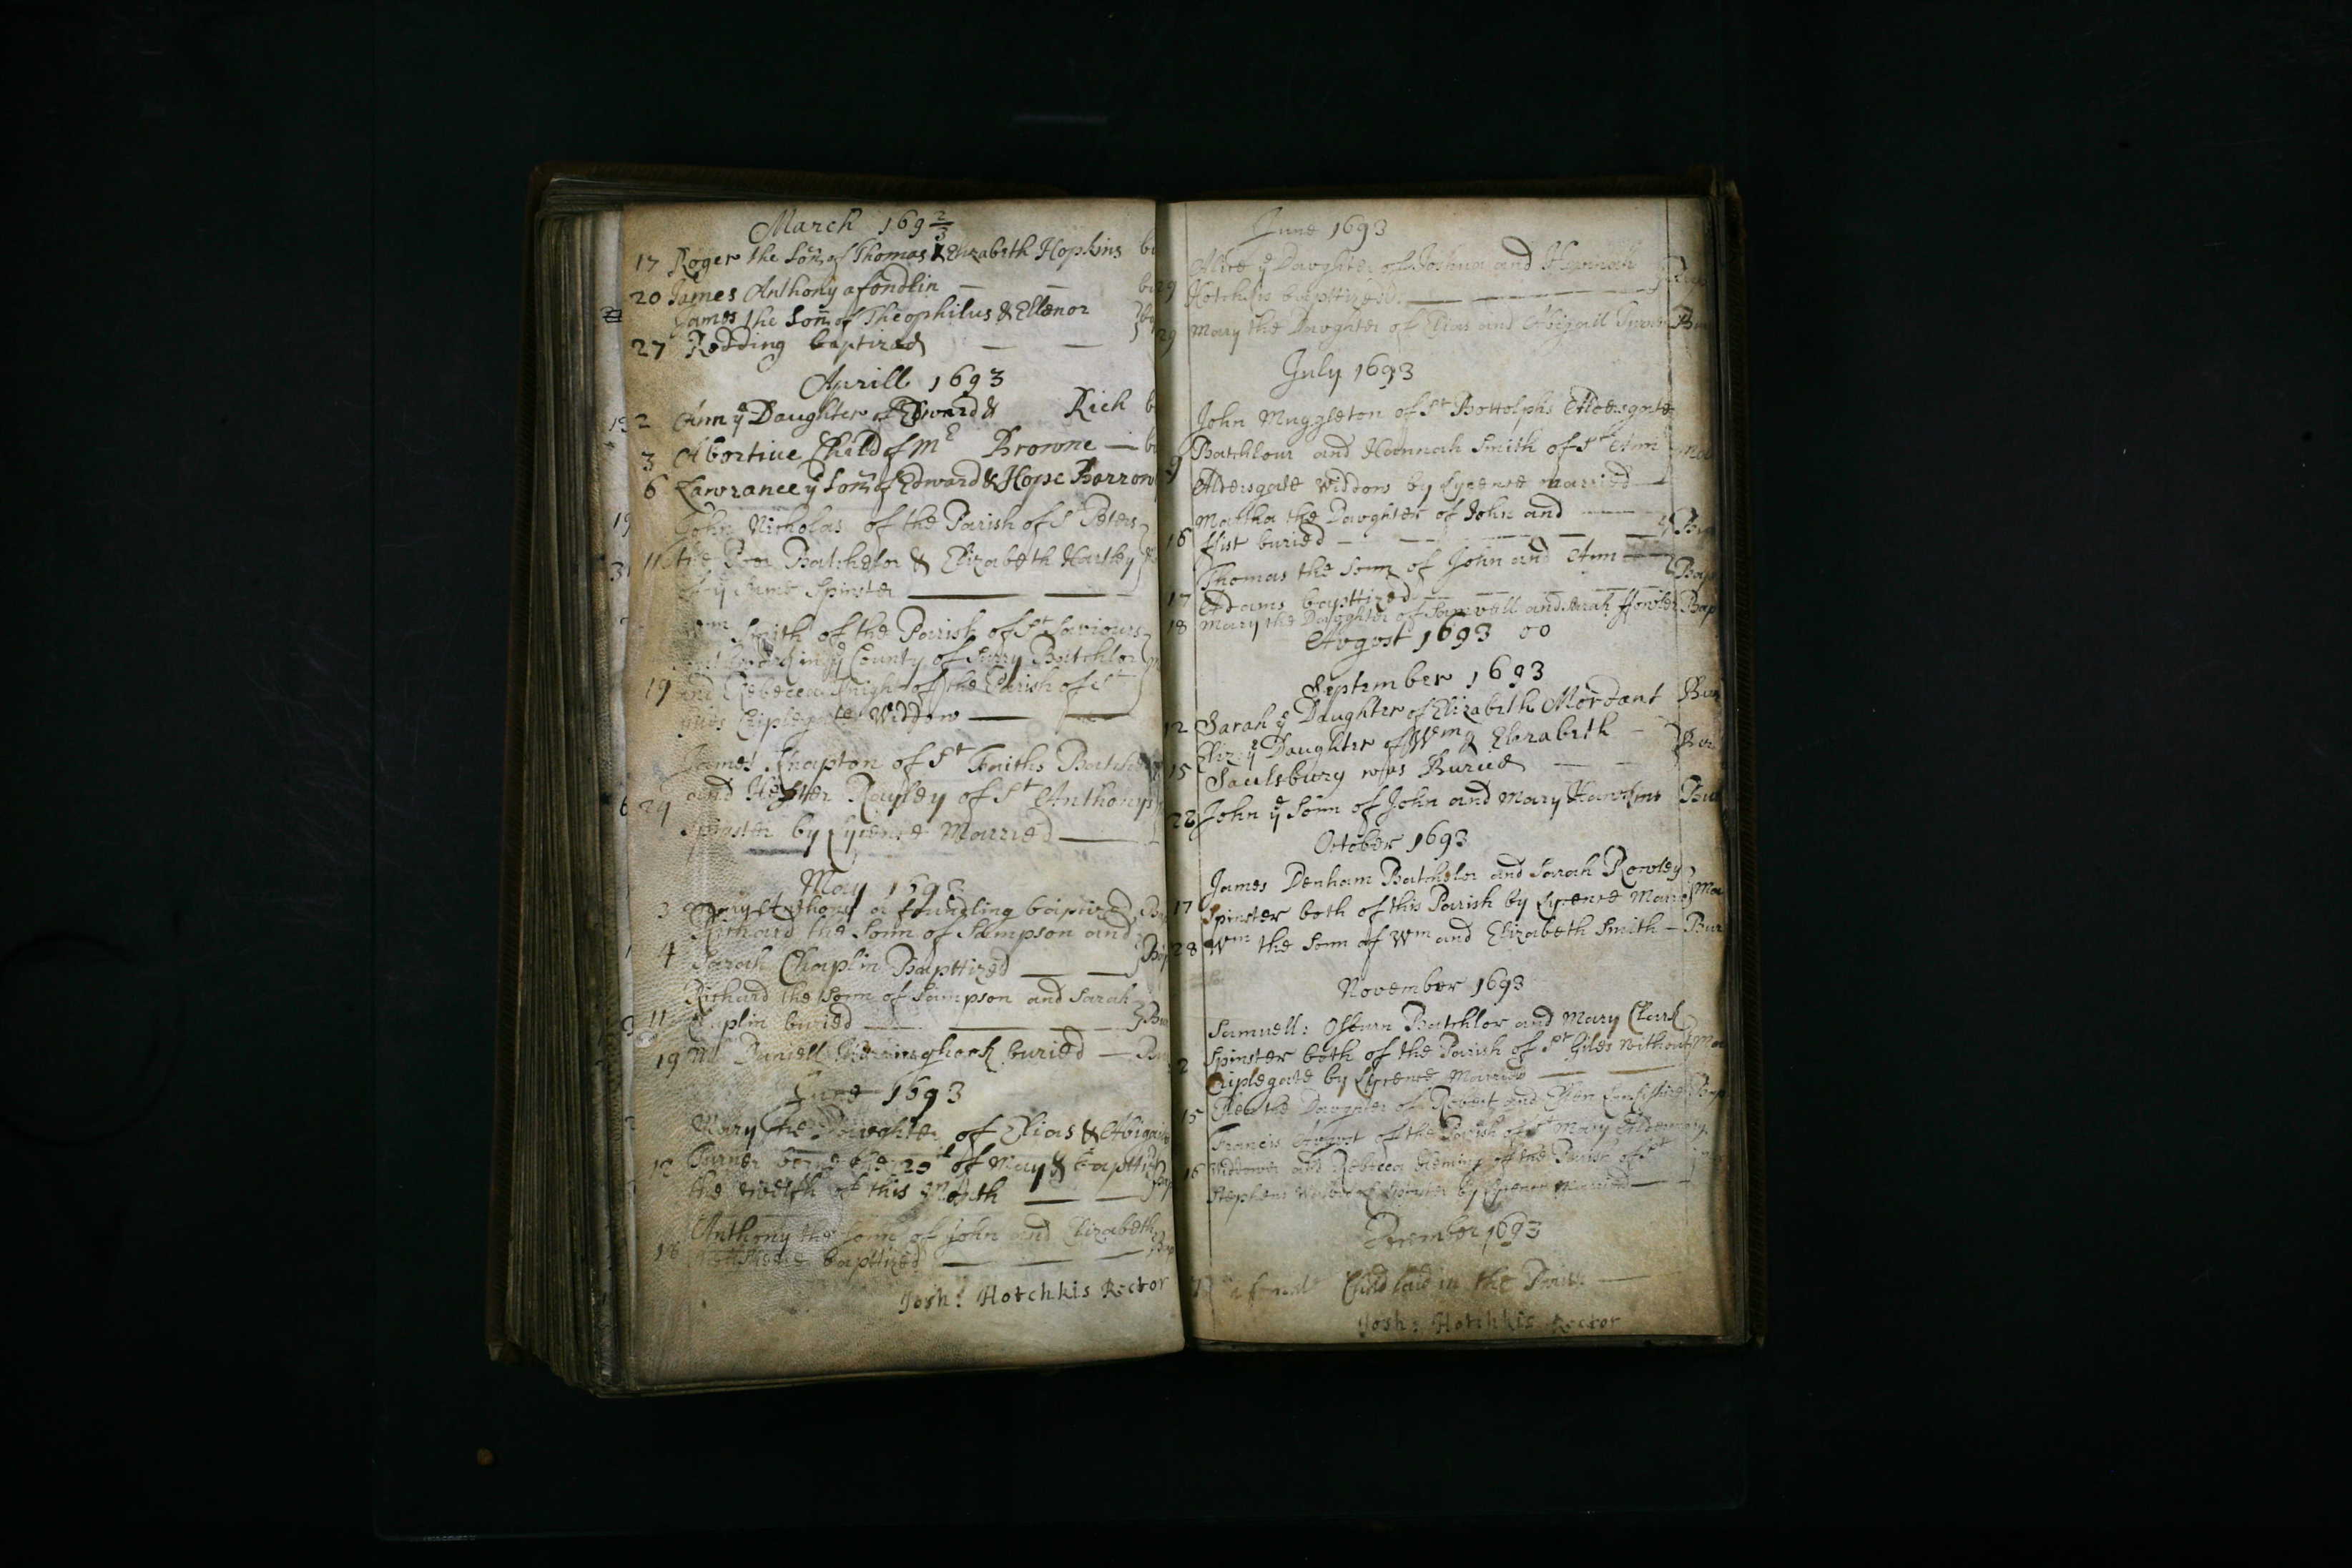 March 169 2/3
17 Roger the Son of Thomas & Elizabeth Hopkins bu
20 James Anthony a fondlin — — bu
James the Sonn of Theophilus & Ellenor
27 Redding baptized — —
Aprill 1693
2 Ann ye Daughter of Edward & Rich b
3 Abortiue Child of Mr Browne — b
6 Lawrance ye Sonn of Edward & Hope Barron
John Nicholas of the Parish of St Peters
11 the Poor Batchelor & Elizabeth Hartley
of ye same Spinster
Wm Smith of the Parish of St Saviours
in ye County of Surry Batchlor
19 and Rebecca Knight of the Parish of St
Giles Criplegate Widdow
James Knapton of St Faiths Batche
29 and Hester Rapley of St Anthonys
Spinster by Lycence Married
May 1693
3 Mary Anthony a foundling baptized
Richard the Sonn of Sampson and
4 Sarah Chaplin Bapttized — — Bap
Richard the Sonn of Sampson and Sarah
11 Chaplin buried — Bu
19 Mr Daniell buried — Bu
June 1693
Mary the Daughter of Elias & Abigail
12 Turner borne the 29th of May & bapttized
the twelfth of this Month — —
Anthony the Sonn of John and Elizabeth
18 bapttized — Bap
Josh: Hotchkis Rector
June 1693
Alice ye Daughter of Joshua and Hannah
29 Hotchkis bapttized
29 Mary the Daughter of Elias and Abigail Turner Bur
July 1693
John Muggleton of St Bottolphs Aldersgate
9 Batchlour and Hannah Smith of St Ann
Aldersgate Widdow by Lycence married
Martha the Daughter of John and
16 Fist buried — Bu
Thomas the Sonn of John and Ann
17 Adams bapttized Bap
18 Mary the Daughter of Samuell and Sarah Bap
August 1693 00
September 1693
12 Sarah ye Daughter of Elizabeth Mordant Bur
Eliz ye Daughter of Wm & Elizabeth —
15 Saulsbury was Buried — — Bur
22 John ye Sonn of John and Mary Hawkins Bu
October 1693
James Denham Batchelor and Sarah Rowley
17 Spinster both of this Parish by Lycence Marr Ma
28 Wm the Sonn of Wm and Elizabeth Smith — Bur
November 1693
Samuell: Osburn Batchlor and Mary Clark
2 Spinster both of the Parish of St Giles without Mar
Criplegate by Lycence Married — —
15 Ellen the Daughter of Robert and Ellen Bap
Francis August of the Parish of St Mary Aldermary
16 Widdower and Rebecca Fleming of the Parish of St
Stephens Spinster by Lycence Married —
December 1693
a femal Child laid in the Parish
Josh: Hotchkis Rector